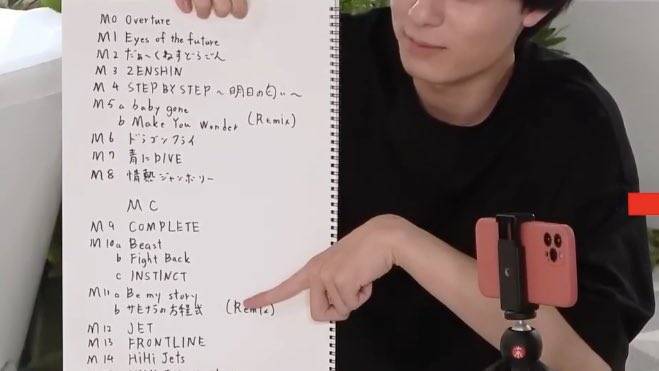 M0 Overture
M1 Eyes of the future
M2 だぁ〜くねすどらごん
M3 ZENSHIN
M4 STEP BY STEP 〜明日の匂い〜
M5 a baby gone
b Make You Wonder (Remix)
M6 ドラゴンフライ
M7 青にDIVE
M8 情熱ジャンボリー
MC
M9 COMPLETE
M10a Beast
b Fight Back
c INSTINCT
M11a Be my story
b サヨナラの方程式 (Remix)
M12 JET
M13 FRONTLINE
M14 HiHi Jets